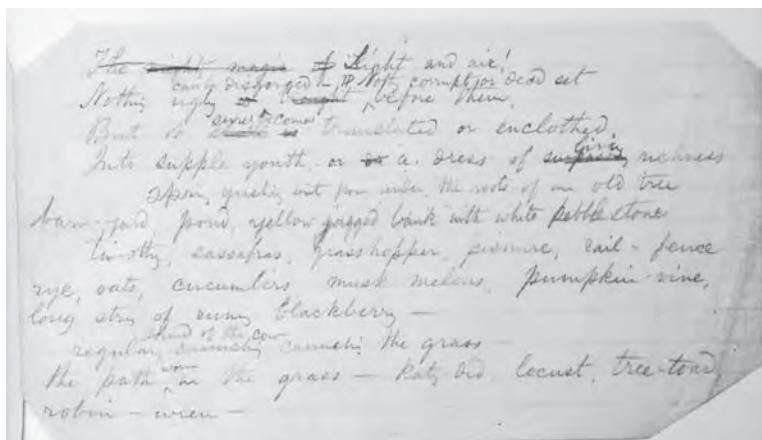 The night magic of Light and air!
can be disgorged Noth corrupt or dead set
Nothing ugly is brought before them,
becomes
But it is translated or enclothed
living
Into supple youth or a dress of surpassing richness
spring gushing out from under the roots of an old tree
barn-yard, pond, yellow jagged bank with white pebblestones
timothy, sassafras, grasshopper, pismire, rail-fence
rye, oats, cucumbers musk-melons, pumpkin-vine,
long string of runng blackberry —
sound of the cow
regular crunching crunching the grass —
worn
The path in the grass — katy-did, locust, tree-toad,
robin – wren –